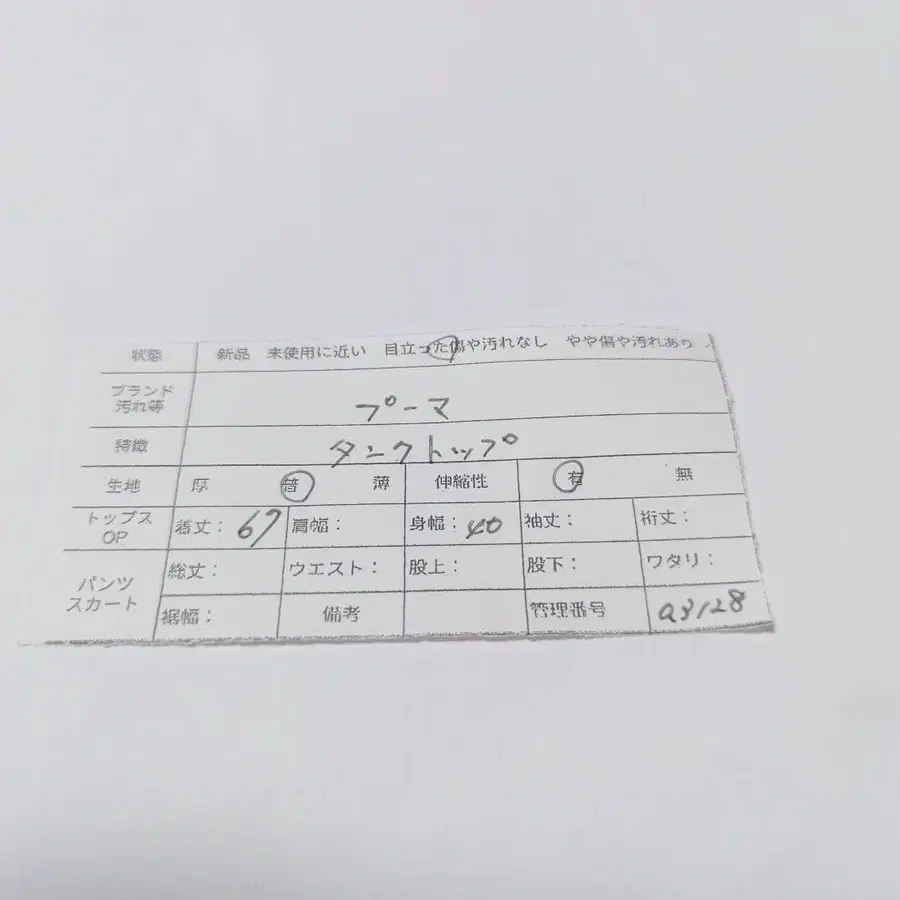 状態 新品 未使用に近い 目立った傷や汚れなし やや傷や汚れあり
ブランド
汚れ等 プーマ
特徴 タンクトップ
生地 厚 普 薄 伸縮性 有 無
トップス
OP 着丈: 67 肩幅: 身幅: 40 袖丈: 裄丈:
パンツ
スカート 総丈: ウエスト: 股上: 股下: ワタリ:
裾幅: 備考 管理番号 a3128